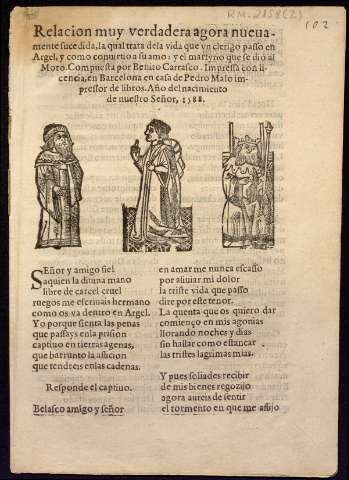 RM-2158(2)
102
Relacion muy verdadera agora nueua-
mente sucedida, la qual trata de la vida que vn clerigo passo en
Argel, y como conuirtio a su amo: y el martyrio que se dio al
Moro. Compuesta por Benito Carrasco. Impressa con li-
cencia, en Barcelona en casa de Pedro Malo im-
pressor de libros. Año del nacimiento
de nuestro Señor, 1588.
SEñor y amigo fiel
a quien la diuina mano
libre de carcel cruel
ruegos me escriuais hermano
como os va dentro en Argel.
Yo porque sienta las penas
que passays en la prision
captiuo en tierras agenas,
que barrunto la aflicion
que tendreis en las cadenas.
Responde el captiuo.
Belasco amigo y señor
en amar me nunca escasso
por aliuiar mi dolor
la triste vida que passo
dire por este tenor.
La quenta que os quiero dar
comienço en mis agonias
llorando noches y dias
sin hallar como estancar
las tristes lagrimas mias.
Y pues soliades recibir
de mis bienes regozijo
agora aureis de sentir
el tormento en que me aflijo